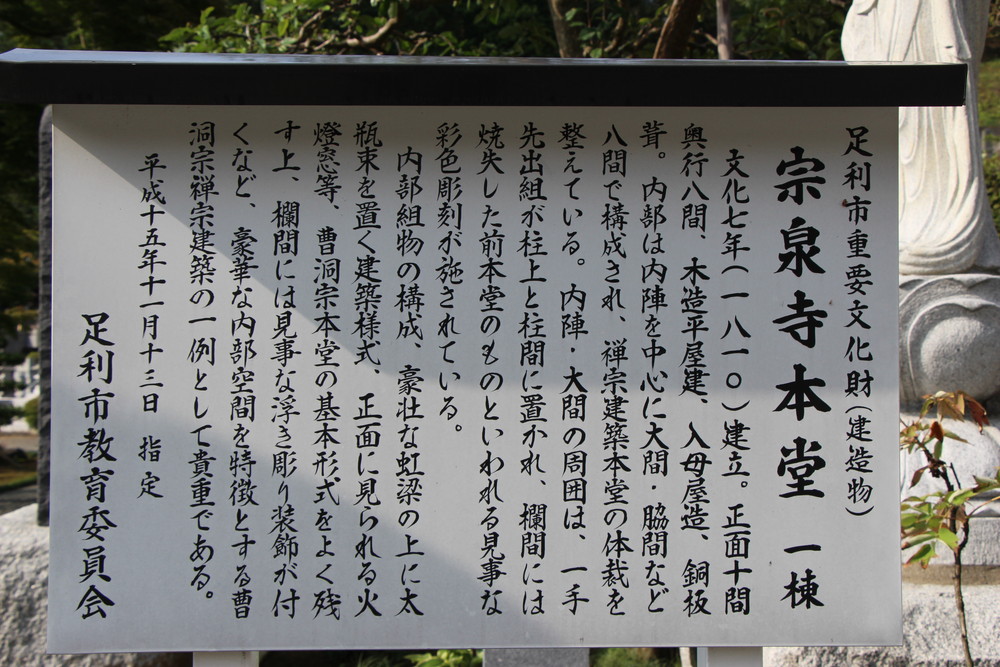 足利市重要文化財(建造物)
宗泉寺本堂 一棟
文化七年(一八一〇)建立。正面十間
奥行八間、木造平屋建、入母屋造、銅板
葺。内部は内陣を中心に大間・脇間など
八間で構成され、禅宗建築本堂の体裁を
整えている。内陣・大間の周囲は、一手
先出組が柱上と柱間に置かれ、欄間には
焼失した前本堂のものといわれる見事な
彩色彫刻が施されている。
内部組物の構成、豪壮な虹梁の上に太
瓶束を置く建築様式、正面に見られる火
燈窓等、曹洞宗本堂の基本形式をよく残
す上、欄間には見事な浮き彫り装飾が付
くなど、豪華な内部空間を特徴とする曹
洞宗禅宗建築の一例として貴重である。
平成十五年十一月十三日 指定
足利市教育委員会